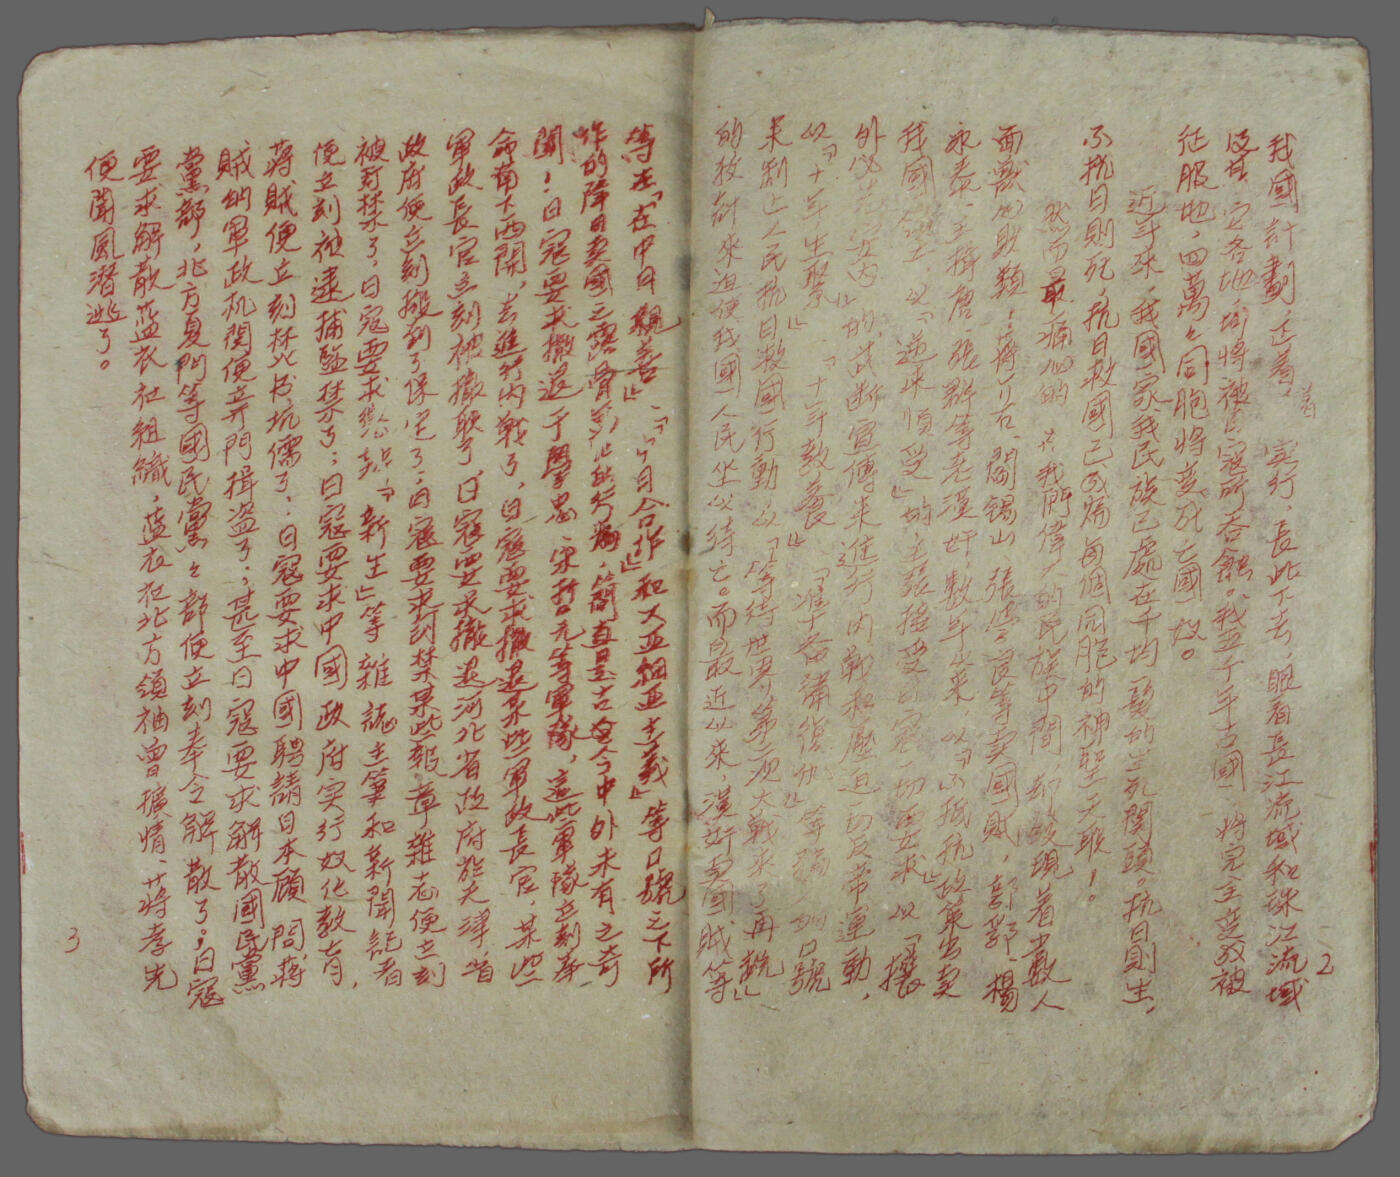 我國計劃,正着着实行,長此下去,眼看長江流域和珠江流域
及其它各地,均將被日寇所吞蝕。我五千年古國將完全变成被
征服地,四萬万同胞將变成亡國奴。
近年來,我國家我民族已處在千均一髮的生死関頭。抗日則生,
不抗日則死,抗日救國已成為每個同胞的神聖天職!
然而最痛心的,在我們偉大的民族中間,却發現着少數人
面獸心的敗類!蔣介石、閻錫山、張學良等卖國賊,邵郛、楊
永泰、王揖唐、張群等老漢奸,數年以來以「不抵抗」政策出卖
我國領土,以「逆來順受」的主張接受日寇一切要求,以「攘
外必先安内」的武断宣傳來進行内戰和壓迫一切反帝運動,
以「十年生聚」「十年教養」「準备諸復仇」等騙人的口號
來制止人民抗日救國行動,以「等待世界第二次大戰來了再說」
的狡計來迫使我國人民坐以待亡。而最近以來,漢奸卖國賊等
等在「在中日親善」、「中日合作」和大亞細亞主義」等口號之下所
作的降日卖國之露骨無耻行為,簡直是古今中外未有之奇
聞!日寇要求撤退于學忠、宋哲元等軍隊,這些軍隊立刻奉
命南下西開,去進行内戰了,日寇要求撤退某些軍政長官,某些
軍政長官立刻被撤職了,日寇要求撤退河北省政府於天津省
政府便立刻搬到了保定了,日寇要求封禁某些報章雜志便立刻
被封禁了,日寇要求懲辦「新生」等雜誌主筆和新聞記者
便立刻被逮捕監禁了;日寇要求中國政府实行奴化教育,
蔣賊便立刻林火书坑儒了,日寇要求中國聘請日本顧問蔣
賊的軍政机関便弃門揖盗了;甚至日寇要求解散國民黨
黨部,北方夏門等國民黨党部便立刻奉令解散了。日寇
要求解散蓝衣社組織,蓝衣社北方領袖曾擴情、蔣孝先
便聞風潛逃了。
2
3